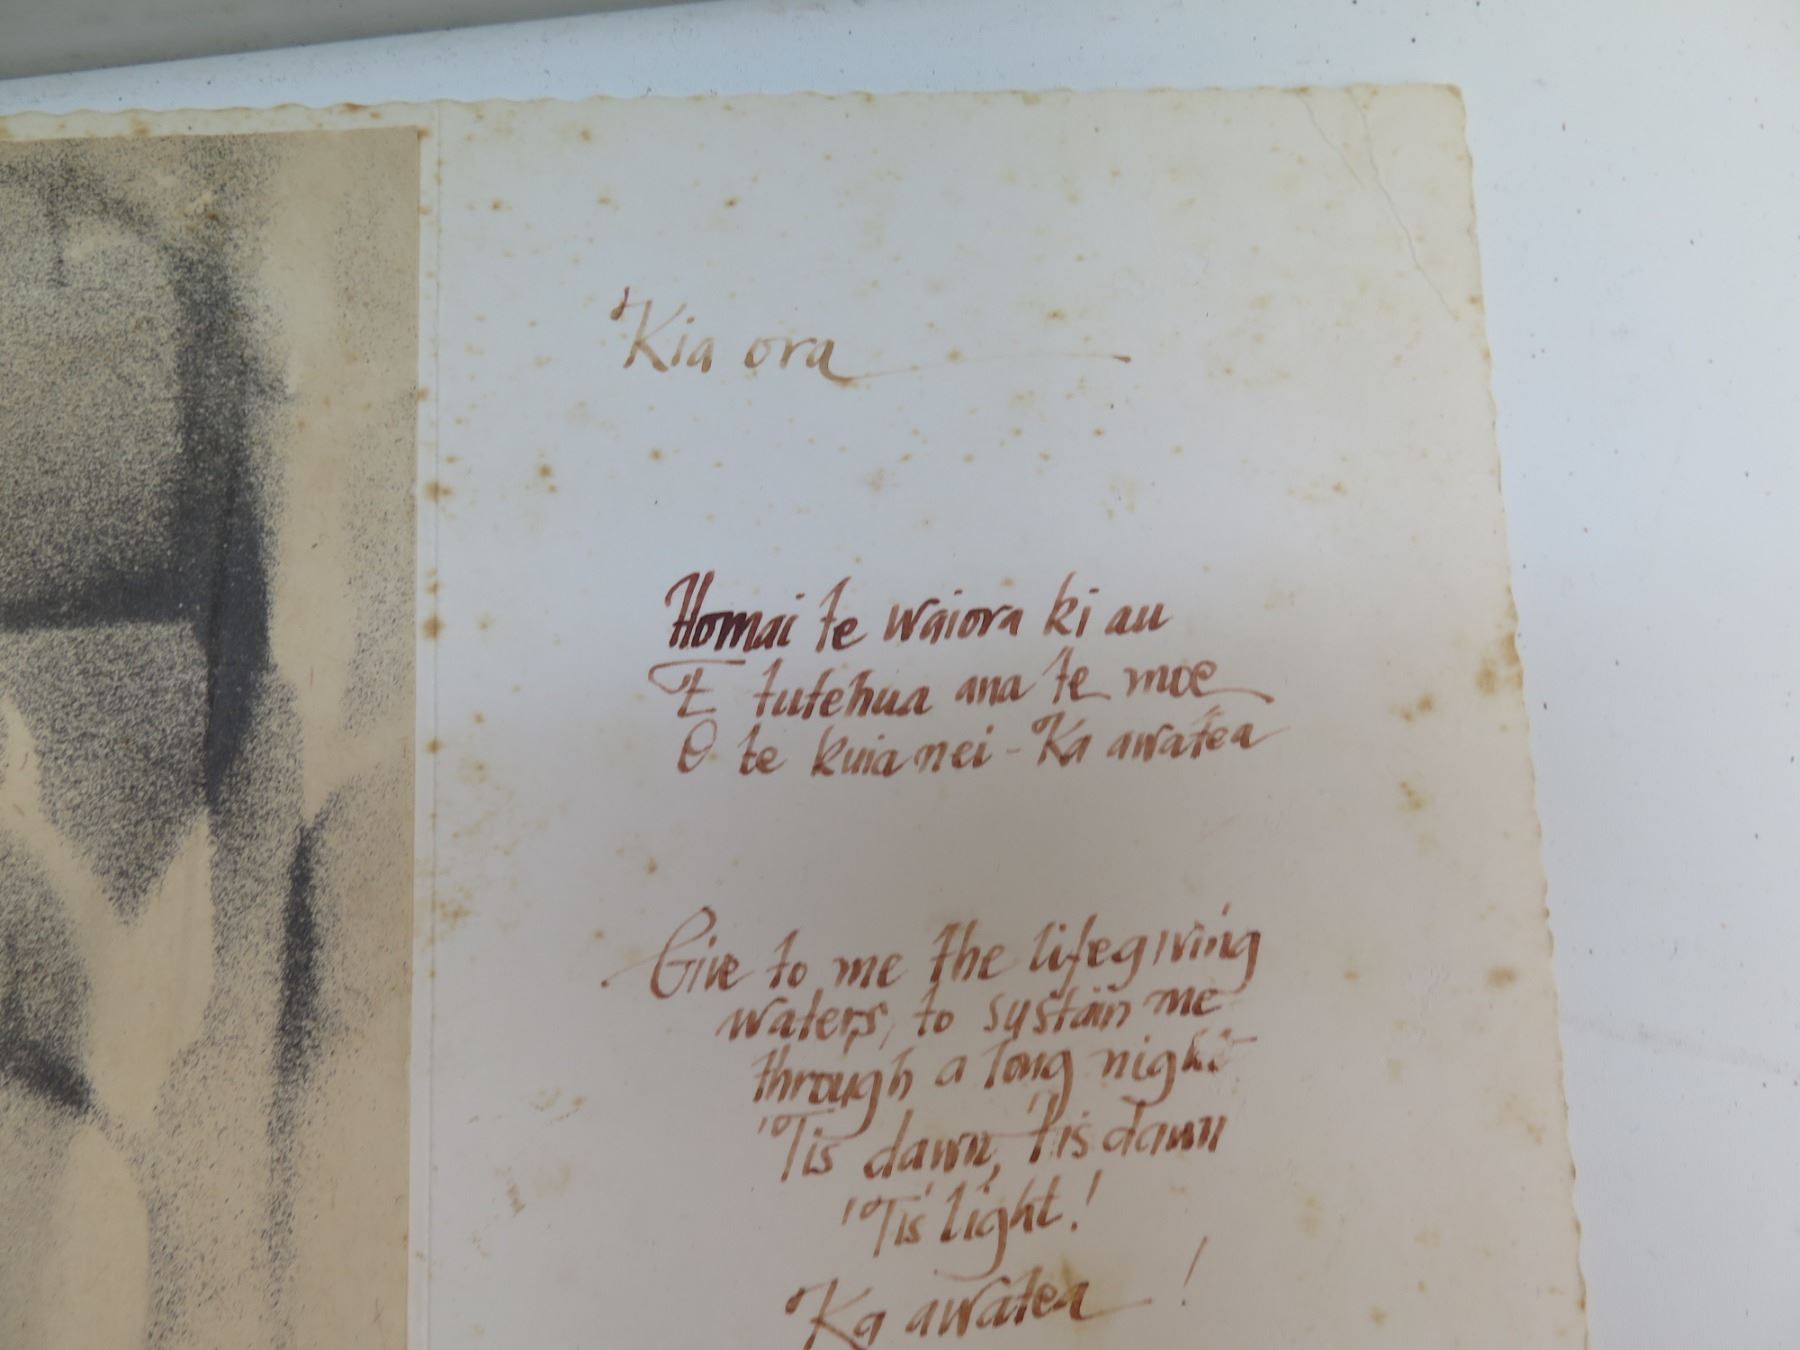 Kia ora
Homai te waiora ki au
E tutehua ana te moe
O te kuia nei - Ka awatea
Give to me the lifegiving
waters, to sustain me
through a long night
'Tis dawn, tis dawn
'Tis light!
Ka awatea!